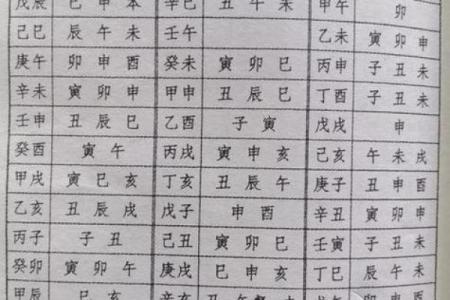 戊辰 巳申本 辛巳 丑午未 甲午 卯
己巳 辰午未 壬午 乙未 寅卯申
庚午 卯申酉 癸未 寅卯巳 丙申 子丑未
辛未 寅卯申 甲申 丑辰巳 丁酉 子丑未
壬申 丑辰巳 乙酉 子寅 戊戌 申
癸酉 寅午 丙戌 寅申亥 己亥 午未戌
甲戌 寅巳亥 丁亥 丑辰午 庚子 丑申酉
乙亥 丑辰戌 戊子 申酉 辛丑 寅卯未
丙子 子丑 己丑 寅卯巳 壬寅 子丑未
癸卯 寅卯午 庚戌 巳申亥 丁巳 辰午未
甲辰 巳亥 辛亥